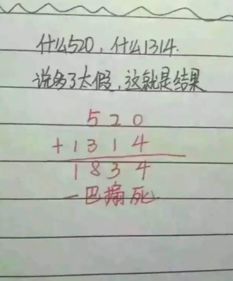 什么520，什么1314.
说多了太假，这就是结果
520
+1314
1834
一巴掌死